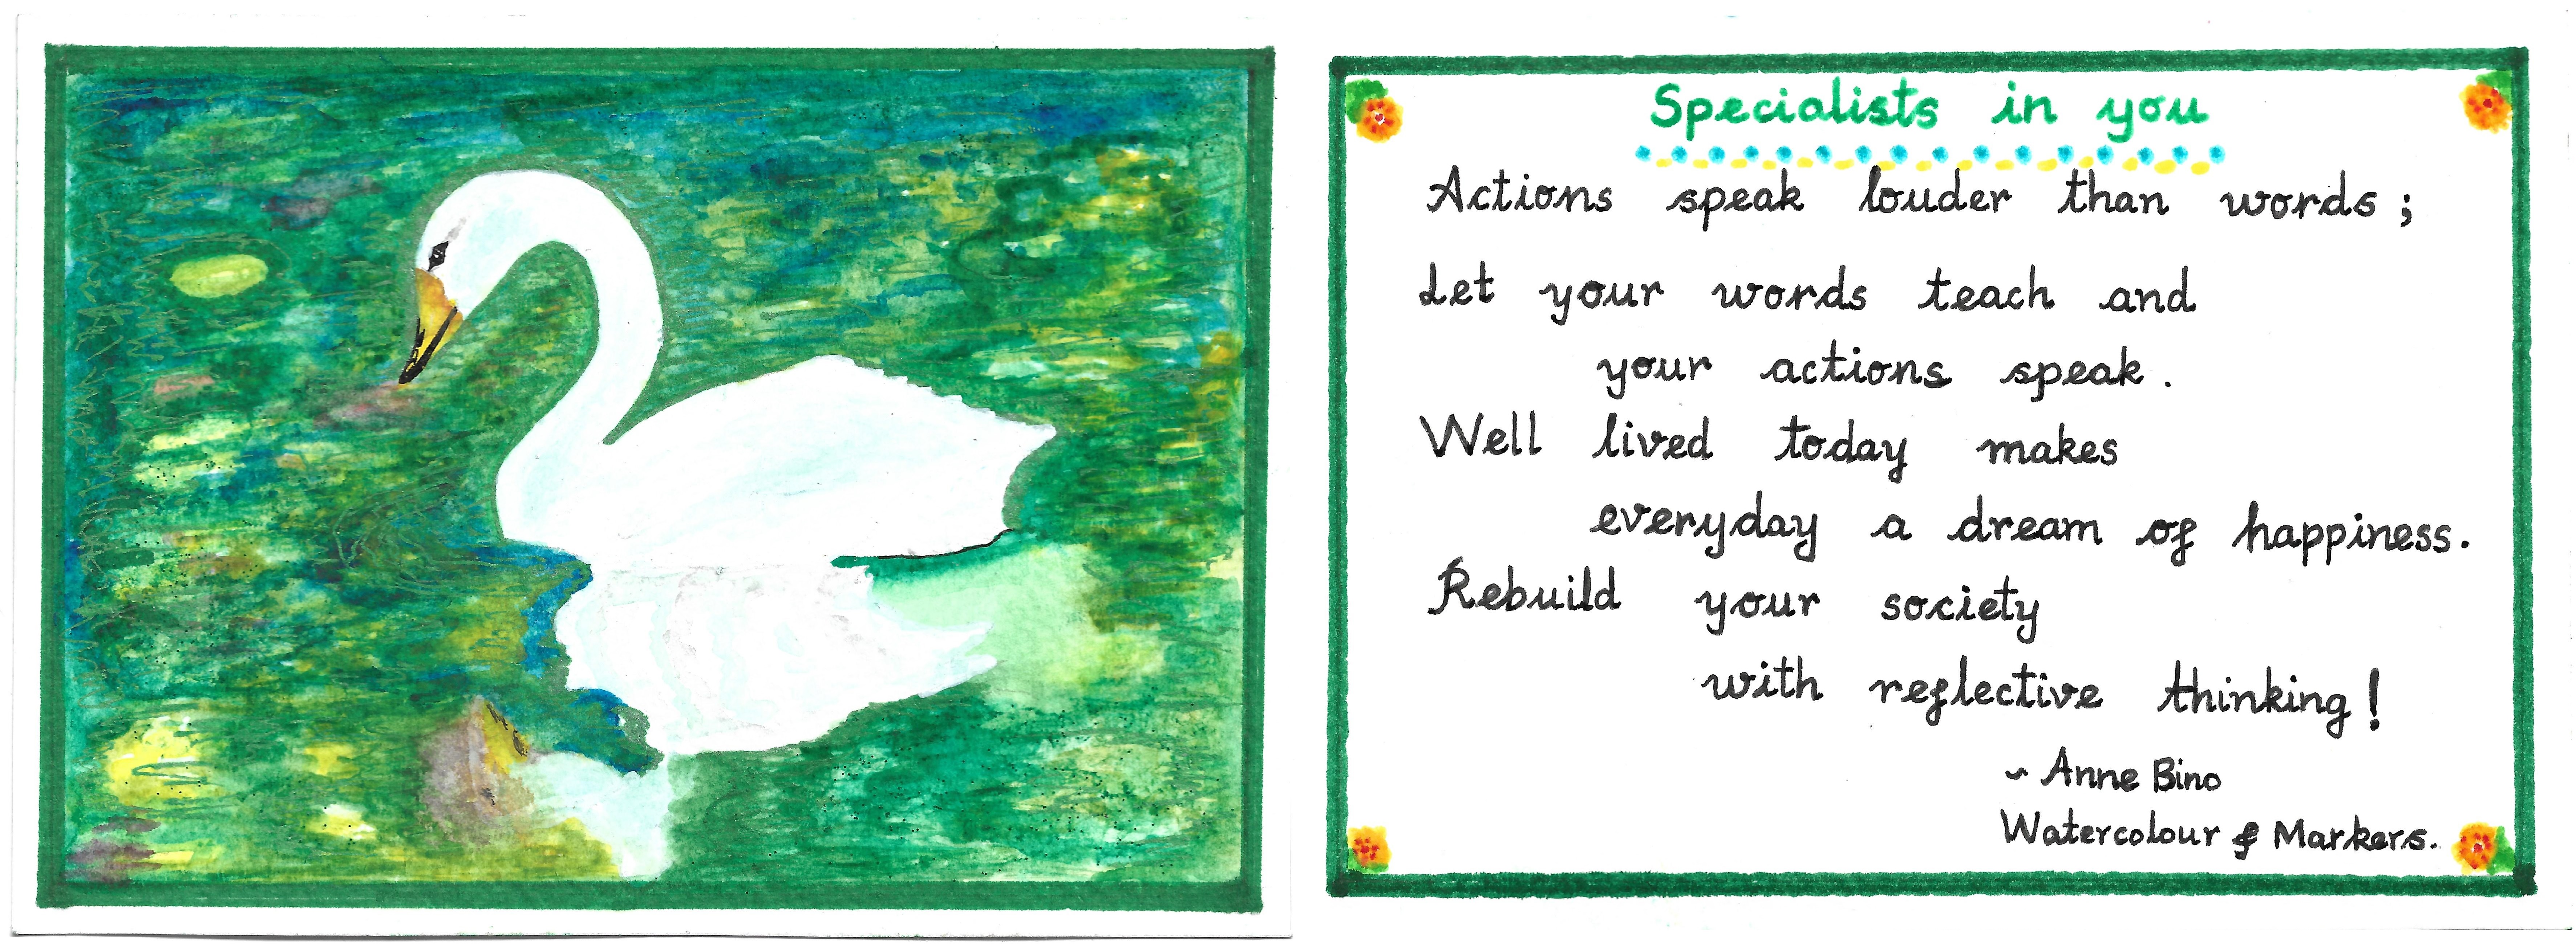 Specialists in you
Actions speak louder than words;
Let your words teach and
your actions speak.
Well lived today makes
everyday a dream of happiness.
Rebuild your society
with reflective thinking!
~ Anne Bino
Watercolour & Markers.